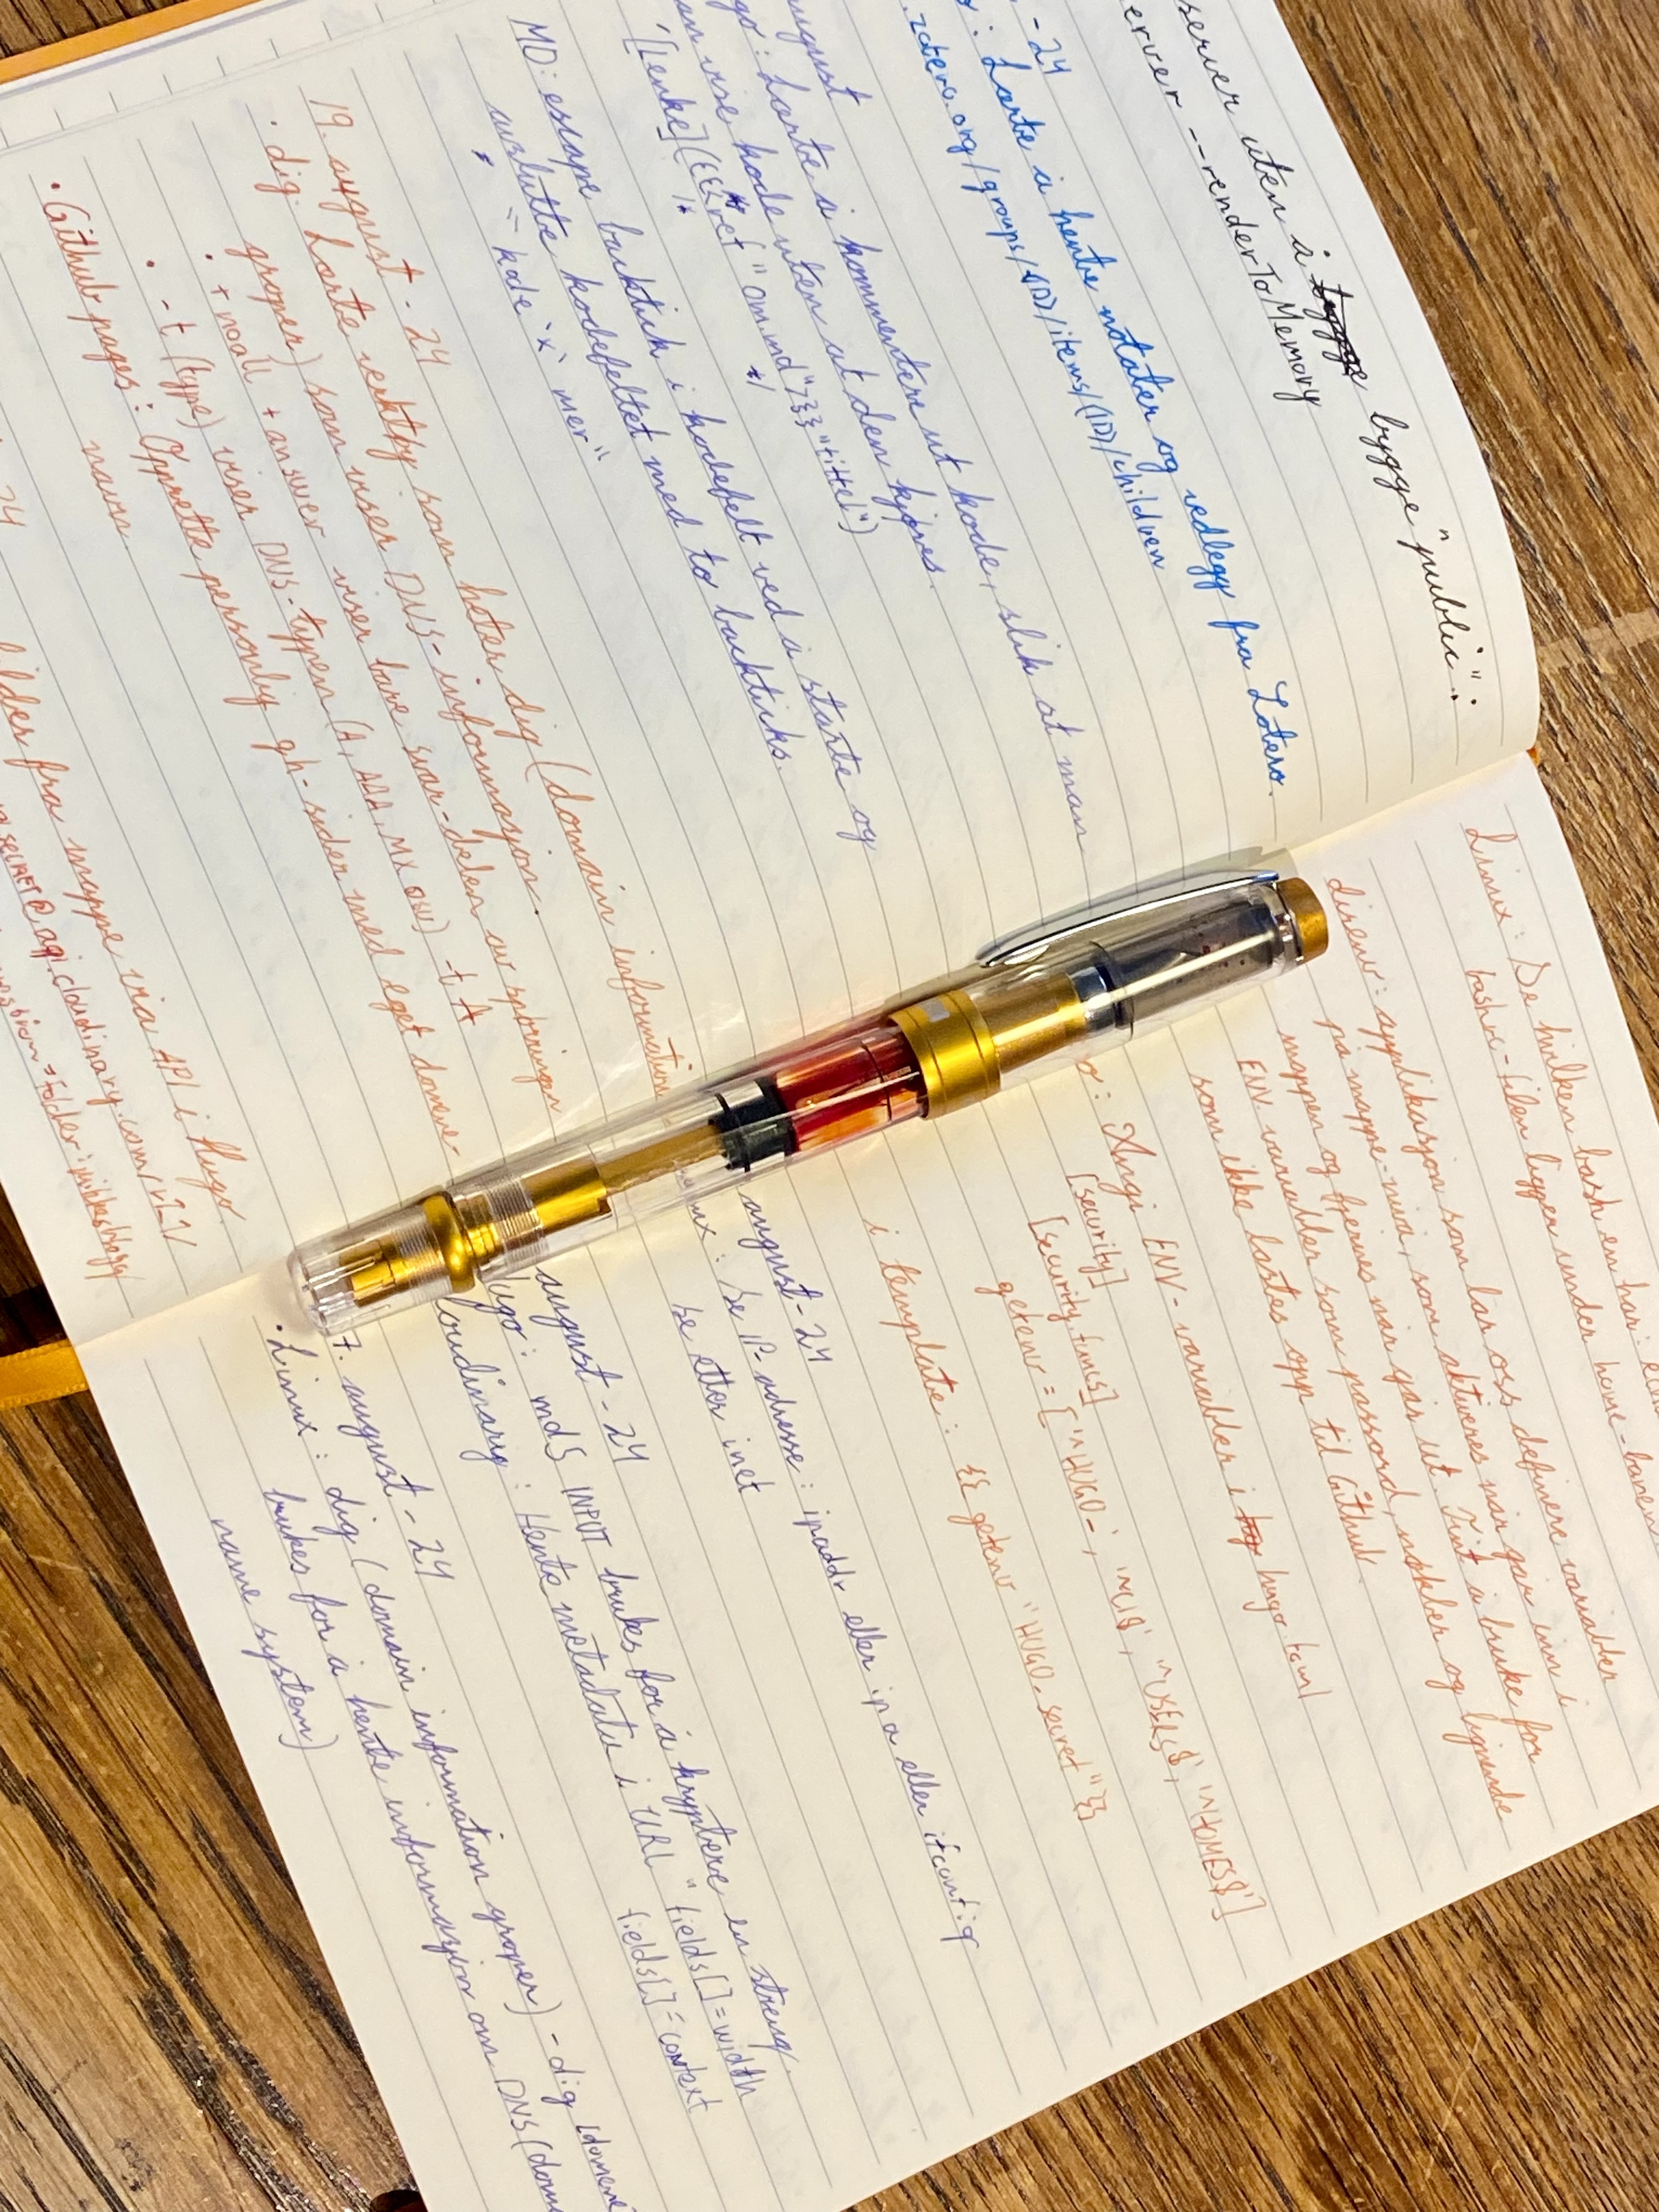 server uten å bygge "public":
erver --renderToMemory
- 24
: Lærte å hente notater og vedlegg fra Zotero.
.zotero.org/groups/(ID)/items/(ID)/children
august
go: Lærte å kommentere ut kode, slik at man
an vise kode uten at den kjøres.
MD: escape backtick i kodefelt ved å starte og
avslutte kodefeltet med to backticks.
`` kode `x` mer ``
19. august - 24
· dig. Lærte verktøy som heter dig (domain information
groper) som viser DNS-informasjon.
· +noall +answer viser bare svar-delen av spørringen
· -t (type) viser DNS-typen (A, AAA, MX osv) -t A
· Github pages: Opprette personlig gh-sider med eget domene
navn.
24
bilder fra mappe via API i Hugo.
SECRET@api.cloudinary.com/v1_1/
Linux: Se hvilken bash en har: echo
bashrc-filen ligger under home-
direnv: applikasjon som lar oss definere variabler
på mappe-nivå, som aktiveres når man går inn i
mappen og fjernes når går ut. Fint å bruke for
ENV. variabler som passord, nøkler og lignende
som ikke lastes opp til Github.
o: Angi ENV-variabler i hugo.toml
[security]
[security.funcs]
getenv = ['^HUGO_', '^CI$', '^USER$', '^HOME$']
i template: {{ getenv "HUGO_secret" }}
august - 24
nux: Se IP-adresse: ip addr eller ip a eller ifconfig
Se etter inet
august - 24
ugo: md5 INPUT brukes for å kryptere en streng
loudinary: Hente metadata i URL "fields[]=width
fields[]=context
7. august - 24
· Linux: dig (domain information groper) - dig [domene
brukes for å hente informasjon om DNS (dom
name system)